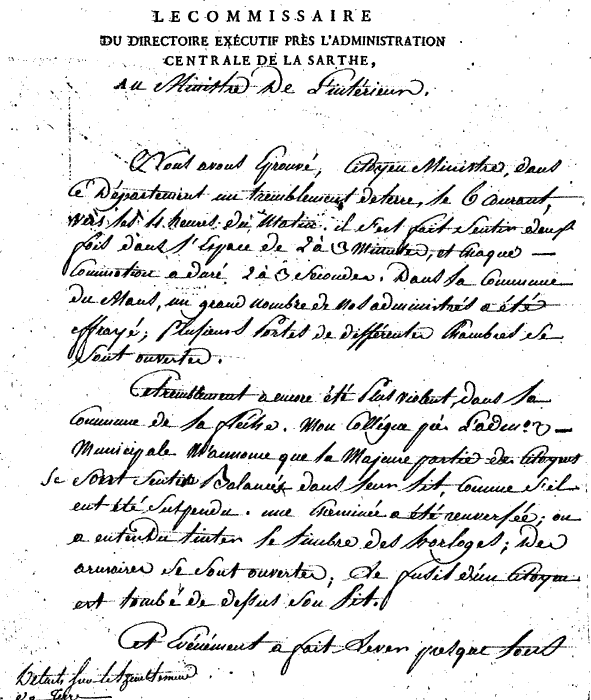 LE COMMISSAIRE
DU DIRECTOIRE EXÉCUTIF PRÈS L'ADMINISTRATION
CENTRALE DE LA SARTHE,
Au Ministre De l'intérieur.
Nous avons Eprouvé, Citoyen Ministre, dans
Ce Département un tremblement de terre, le 6 Courant,
vers les 4 heures du Matin. il s'est fait Sentir deux
fois dans l'espace de 2 à 3 Minutes, et chaque
Commotion a duré 2 à 3 Secondes. Dans la Commune
du Mans, un grand nombre de nos administrés a été
effrayé; plusieurs portes de différentes Chambres se
sont ouvertes.
Ce tremblement a encore été plus violent, dans la
Commune de la flèche. Mon Collègue près l'admon
Municipale M'annonce que la Majeure partie de Citoyens
se sont sentis Balancés dans leur lit, comme s'il
eut été suspendu. une cheminée a été renversée; on
a entendu tinter le timbre des horloges; Des
armoires se sont ouvertes; Le fusil d'un Citoyen
est tombé de dessus son lit.
Cet Evénement a fait lever presque tous
Details sur le tremblement
de Terre